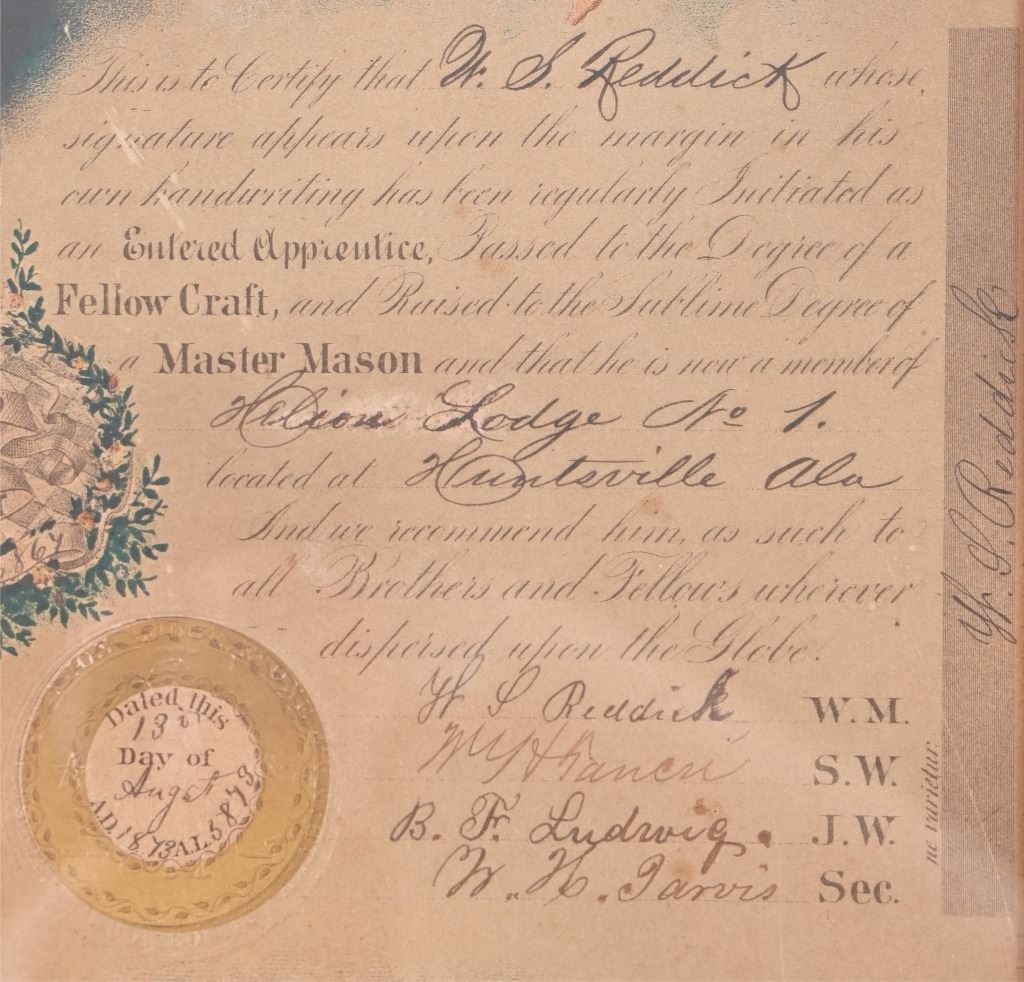 This is to Certify that W. S. Reddick whose
signature appears upon the margin in his
own handwriting has been regularly Initiated as
an Entered Apprentice, Passed to the Degree of a
Fellow Craft, and Raised to the Sublime Degree of
a Master Mason and that he is now a member of
Helion Lodge No 1.
located at Huntsville Ala
And we recommend him, as such to
all Brothers and Fellows wherever
dispersed upon the Globe.
W S Reddick W.M.
S.W.
B. F. Ludwig. J.W.
W. H. Jarvis Sec.
Dated this
13
Day of
Augst
A.D. 1873 A.L. 5873
W. S. Reddick
ne varietur